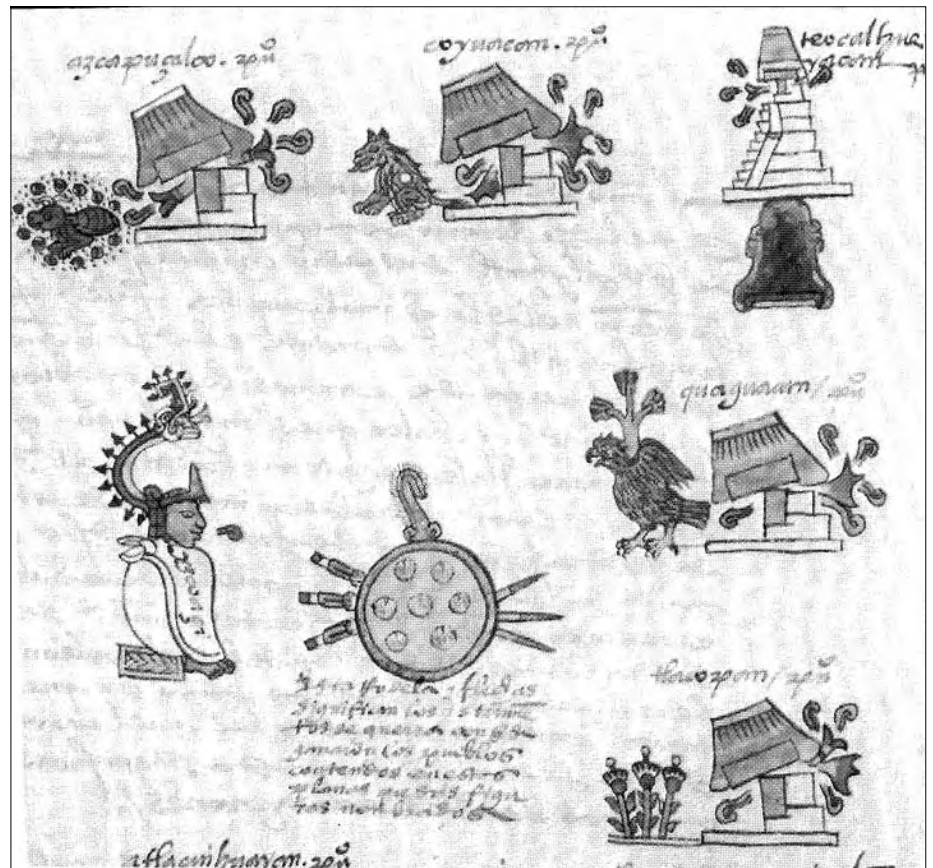 azcapuçalco. pu͞o
coyuacan. pu͞o
teocalhue
yacan pu͞o
quaguacan / pu͞o
ytzcoaçi
esta rodela y flechas
significan los ystrume
tos de guerra con q͞ se
ganaron los pueblos
contenidos en estas
planas por sus figu
ras nonbrados
tlacopan / pu͞o
atlacuihuayan. pu͞o